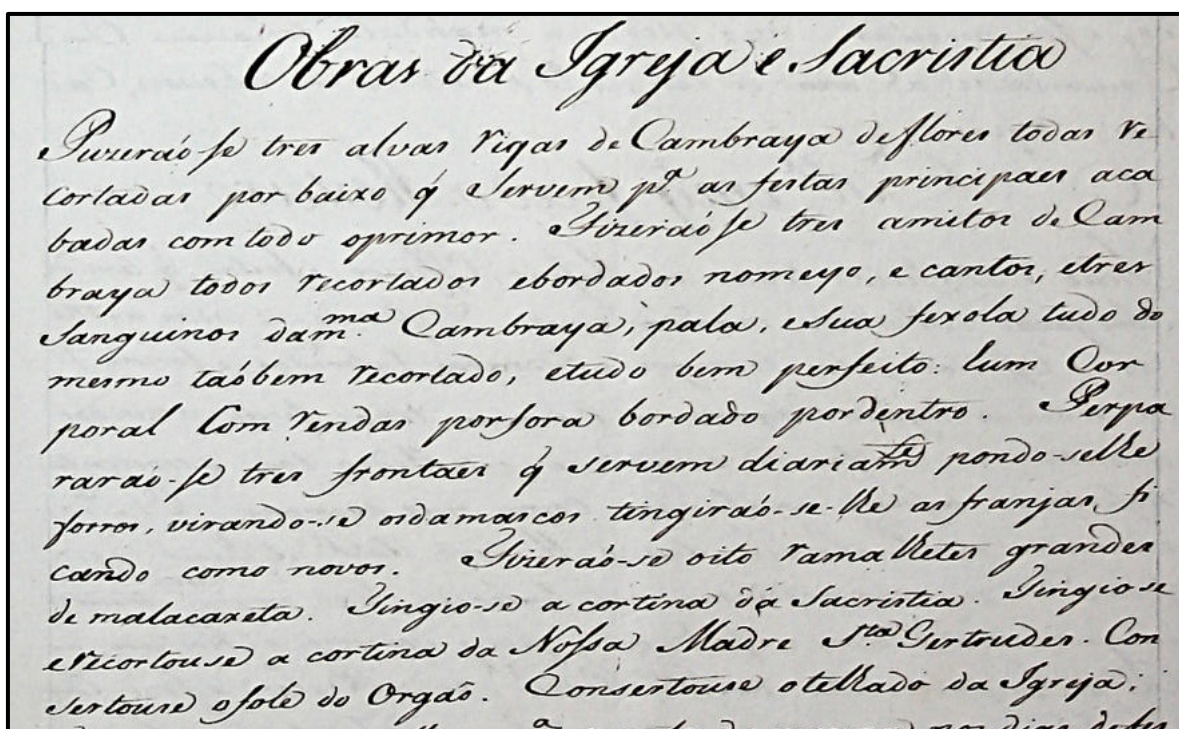 Obras da Igreja e Sacristia
Puzeraó se tres alvas rigas de Cambraya de flores todas re
cortadas por baixo q̃ servem pª as festas principaes aca
badas com todo oprimor. Fizeraó se tres amitos de Cam
braya todos recortados ebordados nomeyo, e cantos, etres
sanguinos dam.ma Cambraya, pala, esua fexola tudo do
mesmo taóbem recortado, etudo bem perfeito: hum Cor
poral Com rendas porfora bordado pordentro. Perpa
raraó-se tres frontaes q̃ servem diariamte pondo-selhe
forros, virando-se osdamascos tingiraó-se-lhe as franjas, fi
cando como novos. Fizeraó-se oito ramalhetes grandes
de malacaxeta. Tingio-se a cortina da Sacristia. Tingiose
erecortouse a cortina da Nossa Madre Sta Gertrudes. Con
sertouse ofole do Orgaõ. Consertouse otelhado da Igreja;